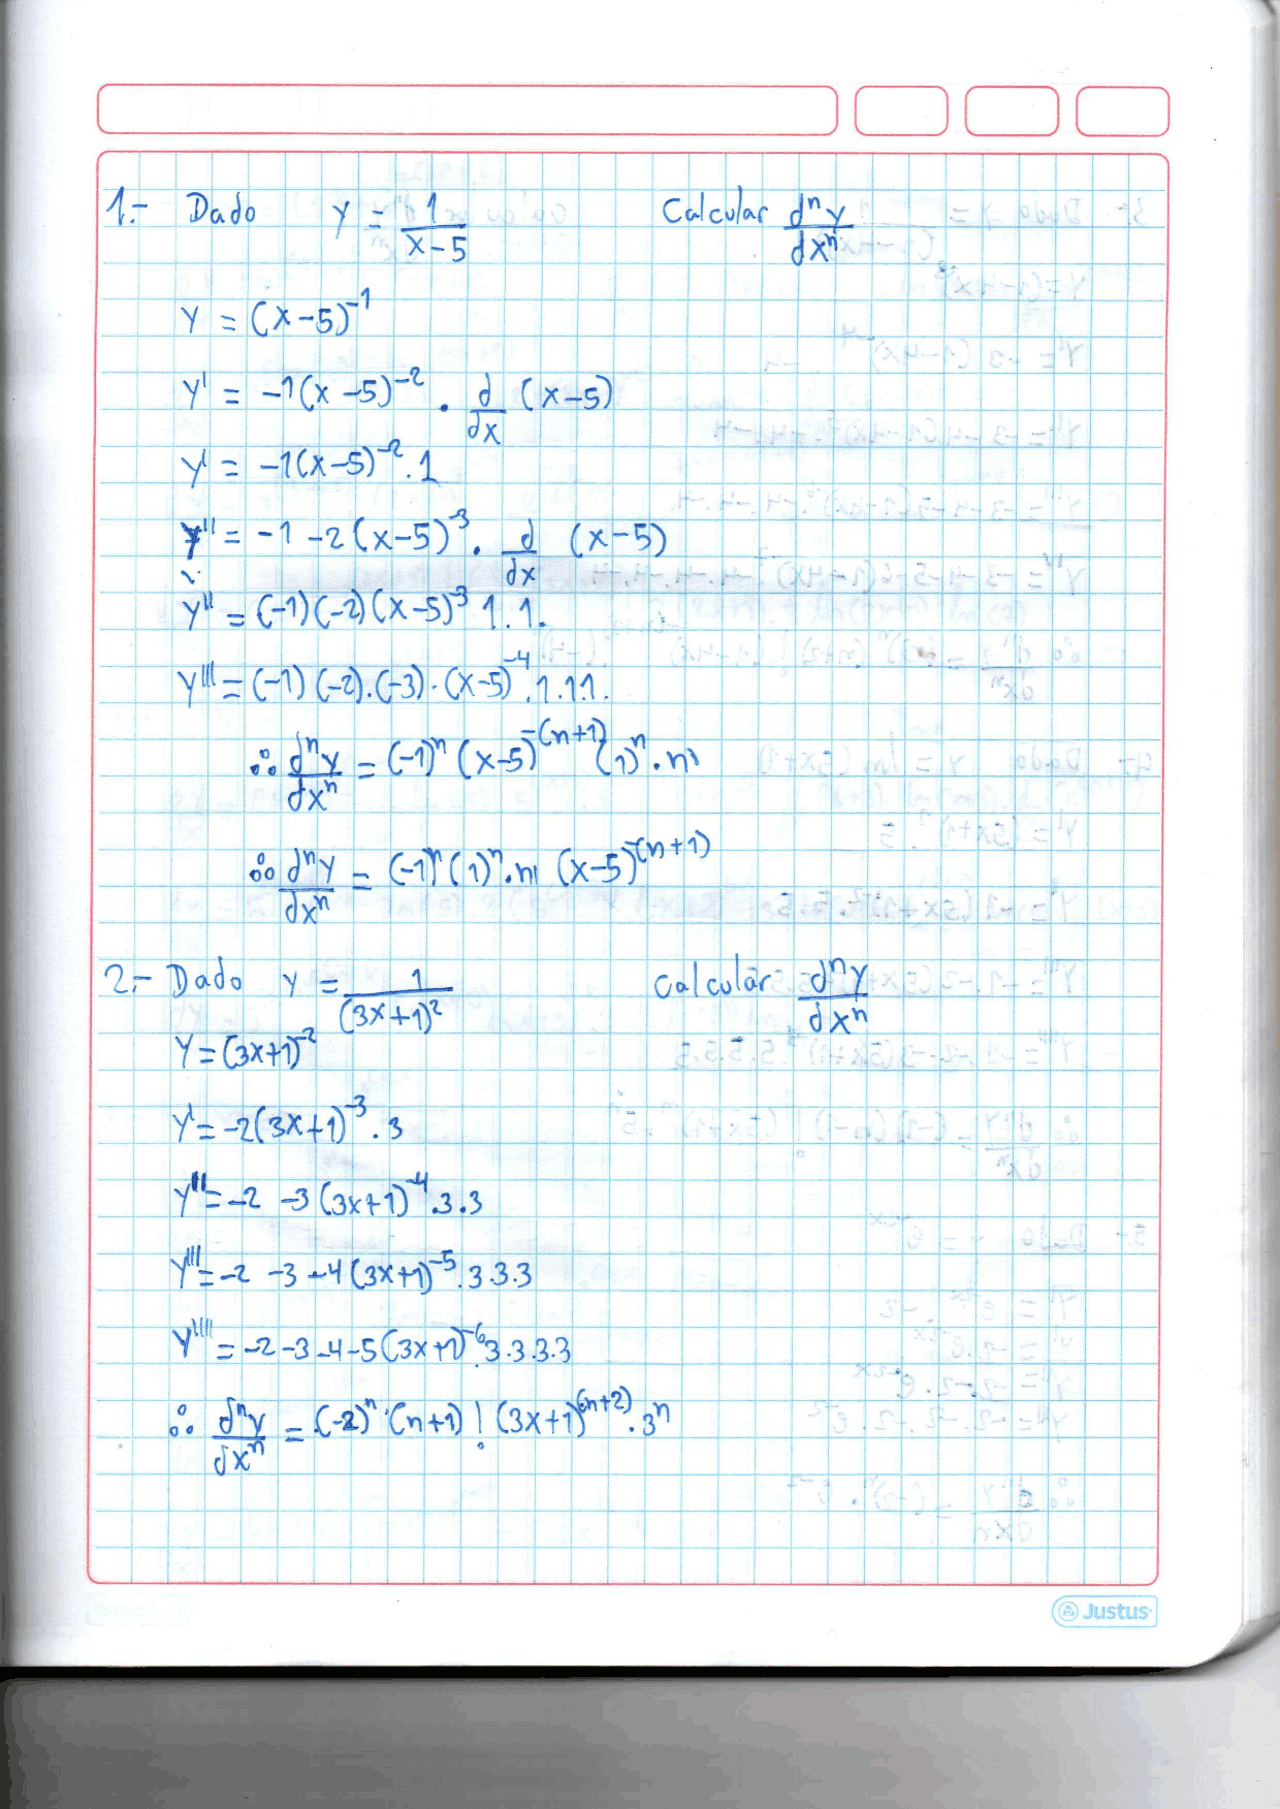 1.- Dado y = 1/(x-5) Calcular dⁿy/dxⁿ
y = (x-5)⁻¹
y' = -1(x-5)⁻² . d/dx (x-5)
y' = -1(x-5)⁻² . 1
y'' = -1 -2(x-5)⁻³ . d/dx (x-5)
y'' = (-1)(-2)(x-5)⁻³ 1.1.
y''' = (-1)(-2).(-3).(x-5)⁻⁴.1.1.1.
∴ dⁿy/dxⁿ = (-1)ⁿ (x-5)^-(n+1) (1)ⁿ . n!
∴ dⁿy/dxⁿ = (-1)ⁿ (1)ⁿ . n! (x-5)^-(n+1)
2.- Dado y = 1/(3x+1)² Calcular dⁿy/dxⁿ
y = (3x+1)⁻²
y' = -2(3x+1)⁻³ . 3
y'' = -2 -3(3x+1)⁻⁴.3.3
y''' = -2 -3 -4(3x+1)⁻⁵.3.3.3
y'''' = -2-3-4-5(3x+1)⁻⁶.3.3.3.3
∴ dⁿy/dxⁿ = (-2)ⁿ.(n+1)! (3x+1)^(n+2) . 3ⁿ
Justus